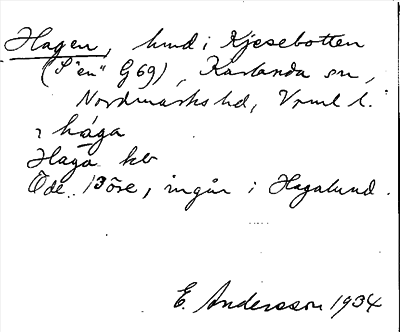 Hagen, lund i Kjesebotten
(S"en" G69), Karlanda sn,
Nordmarks hd, Vrml l.
haga
Haga hb
Öde. Böre, ingår i Hagalund.
E. Andersson 1934